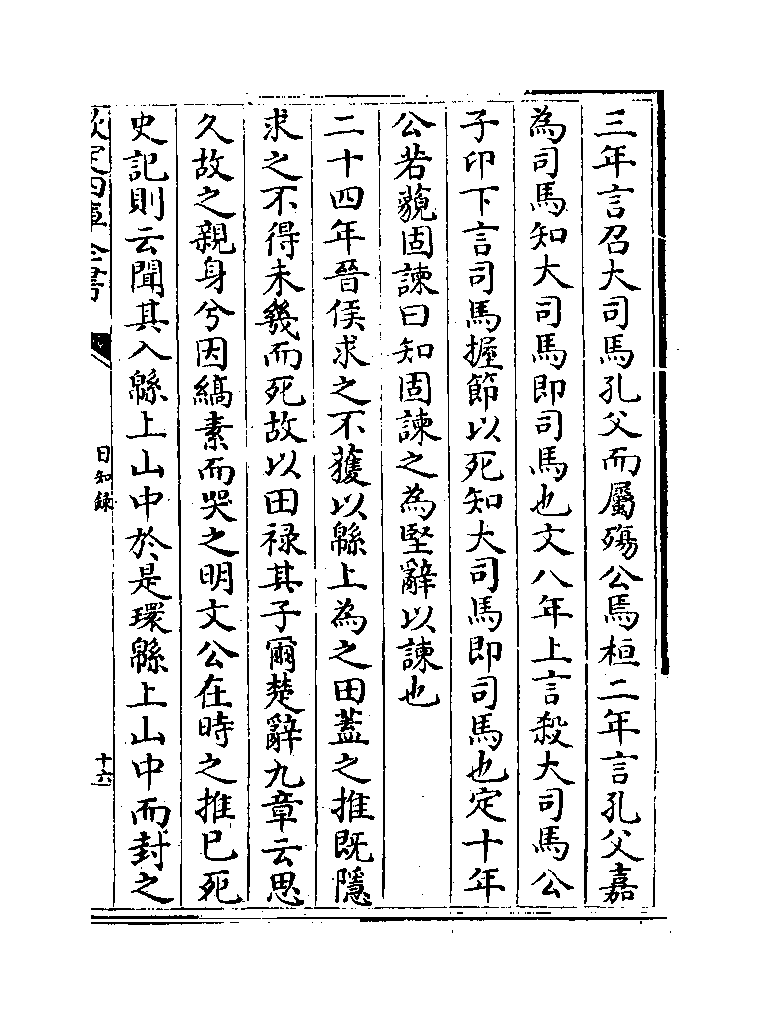 三年言召大司馬孔父而屬殤公焉桓二年言孔父嘉
為司馬知大司馬即司馬也文八年上言殺大司馬公
子卬下言司馬握節以死知大司馬即司馬也定十年
公若藐固諫曰知固諫之為堅辭以諫也
二十四年晉侯求之不獲以緜上為之田蓋之推既隱
求之不得未幾而死故以田祿其子爾楚辭九章云思
久故之親身兮因縞素而哭之明文公在時之推已死
史記則云聞其入緜上山中於是環緜上山中而封之
欽定四庫全書
日知錄
十六